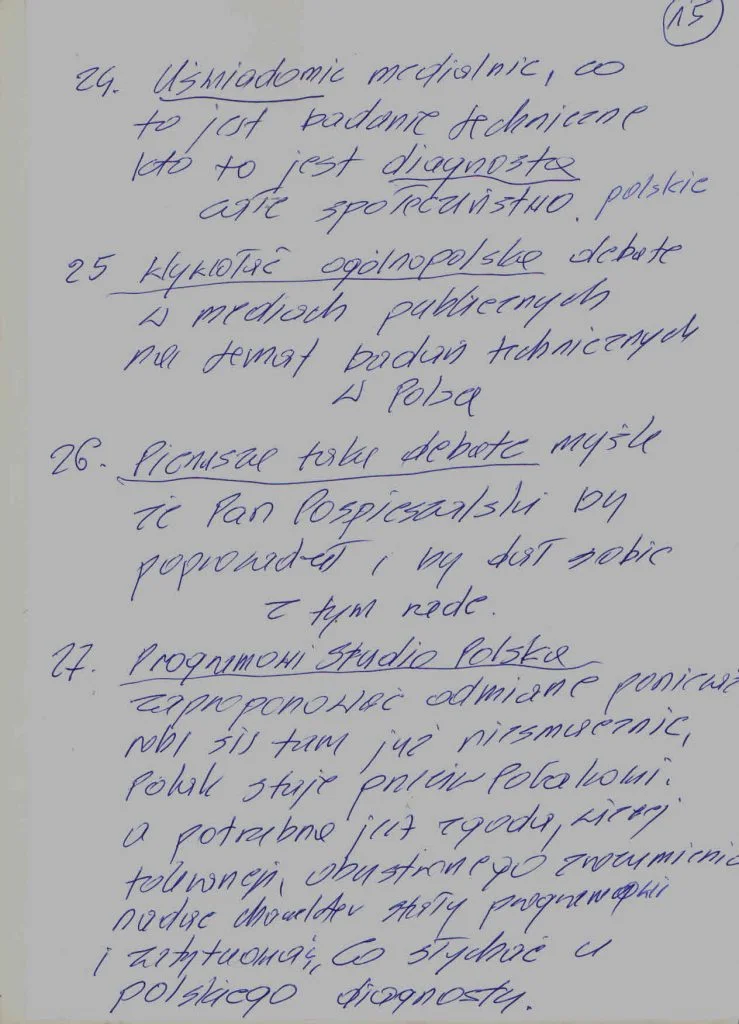 15
24. Uświadomić medialnie, co
to jest badanie techniczne
kto to jest diagnosta
całe społeczeństwo polskie
25 Wywołać ogólnopolską debatę
w mediach publicznych
na temat badań technicznych
w Polsce
26. Pierwszą taką debatę myślę
że Pan Pospieszalski by
poprowadził i by dał sobie
z tym radę.
27. Programowi Studio Polska
zaproponować odmianę ponieważ
robi się tam już niesmacznie,
Polak staje przeciw Polakowi.
a potrzebna jest zgoda, więcej
tolerancji, obustronnego zrozumienia
nadać charakter stały
i zatytuować, Co słychać u
polskiego diagnosty.